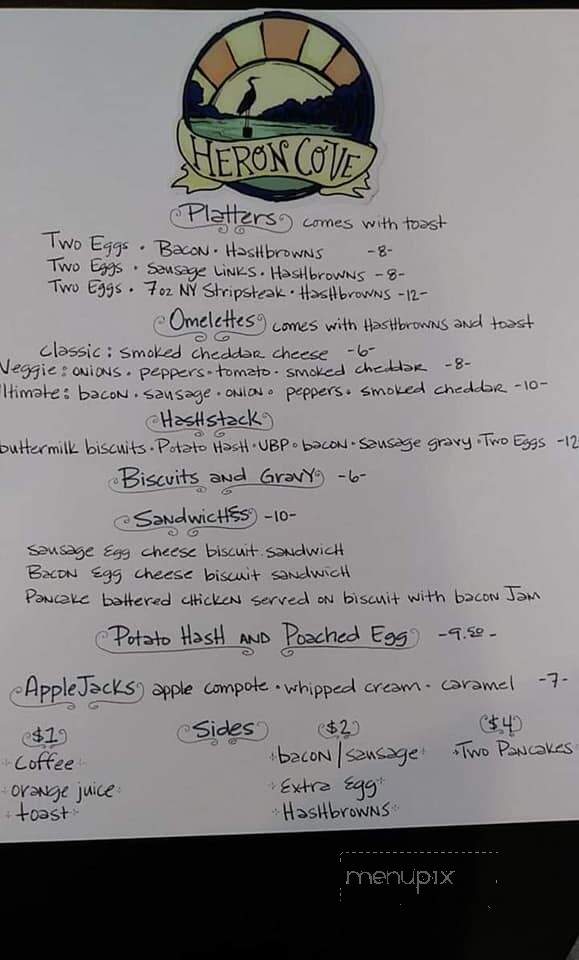 HERON COVE
Platters comes with toast
Two Eggs • Bacon • Hashbrowns -8-
Two Eggs • Sausage Links • Hashbrowns -8-
Two Eggs • 7oz NY Stripsteak • Hashbrowns -12-
Omelettes comes with Hashbrowns and toast
classic: smoked cheddar cheese -6-
Veggie: onions • peppers • tomato • smoked cheddar -8-
ltimate: bacon • sausage • onion • peppers • smoked cheddar -10-
Hashstack
buttermilk biscuits • Potato Hash • UBP • bacon • sausage gravy • Two Eggs -12
Biscuits and Gravy -6-
Sandwichss -10-
Sausage Egg cheese biscuit sandwich
Bacon Egg cheese biscuit sandwich
Pancake battered chicken served on biscuit with bacon Jam
Potato Hash and Poached Egg -9.50-
AppleJacks apple compote • whipped cream • caramel -7-
$1 Sides $2 $4
Coffee bacon/sausage Two Pancakes
orange juice Extra Egg
toast Hashbrowns
menupix